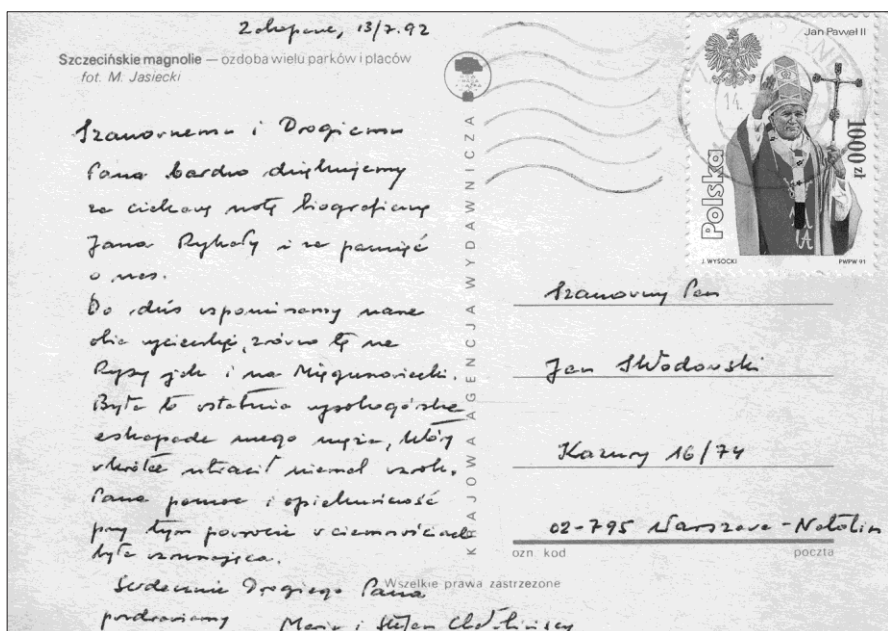 Zakopane, 13/7.92
Szczecińskie magnolie — ozdoba wielu parków i placów
fot. M. Jasiecki
Szanownemu i Drogiemu
Panu bardzo dziękujemy
za ciekawą notę biograficzną
Jana Rykały i za pamięć
o nas.
Do dziś wspominamy nasze
obie wycieczki, zrówno tę na
Rysy jak i na Mięguszowiecki.
Była to ostatnia wysokogórska
eskapada mego męża, który
wkrótce utracił niemal wzrok.
Pana pomoc i opiekuńczość
przy tym powrocie w ciemnościach
była wzruszająca.
Serdecznie Drogiego Pana
pozdrawiamy Maria i Stefan
KRAJOWA AGENCJA WYDAWNICZA
Jan Paweł II
1000 zł
Polska
J. WYSOCKI
PWPW 91
14.
Szanowny Pan
Jan Skłodowski
Kazury 16/74
02-795 Warszawa-Natolin
ozn. kod
poczta
Wszelkie prawa zastrzeżone